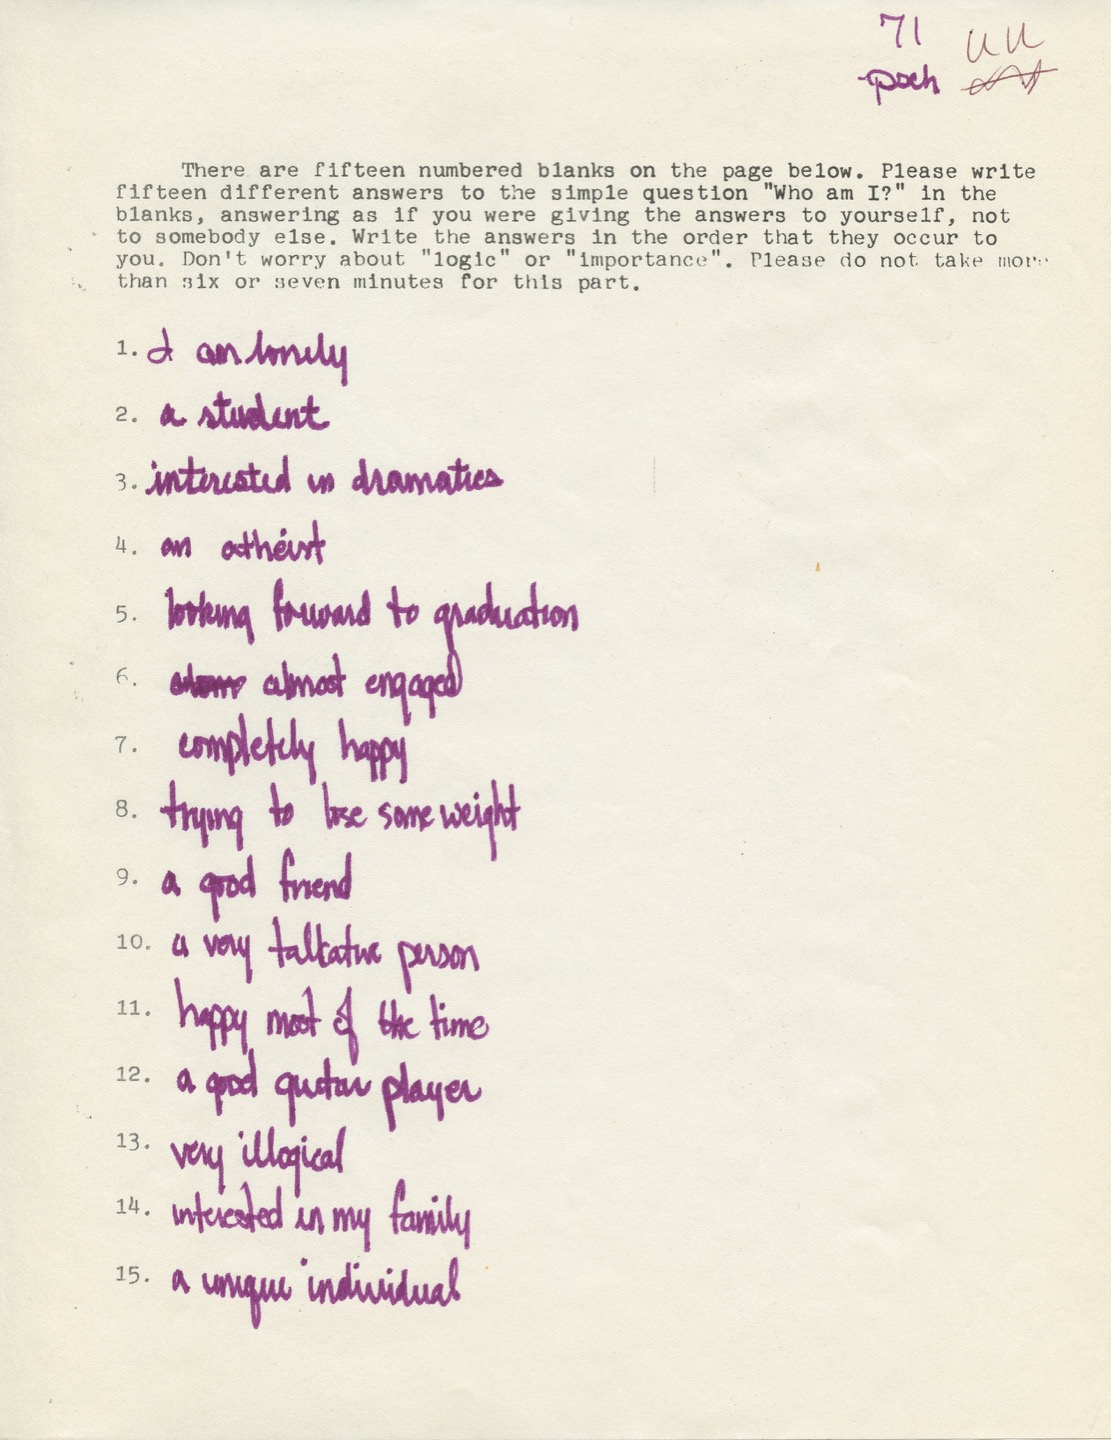 71
poch
There are fifteen numbered blanks on the page below. Please write
fifteen different answers to the simple question "Who am I?" in the
blanks, answering as if you were giving the answers to yourself, not
to somebody else. Write the answers in the order that they occur to
you. Don't worry about "logic" or "importance". Please do not take more
than six or seven minutes for this part.
1. I am lonely
2. a student
3. interested in dramatics
4. an atheist
5. looking forward to graduation
6. almost engaged
7. completely happy
8. trying to lose some weight
9. a good friend
10. a very talkative person
11. happy most of the time
12. a good guitar player
13. very illogical
14. interested in my family
15. a unique individual